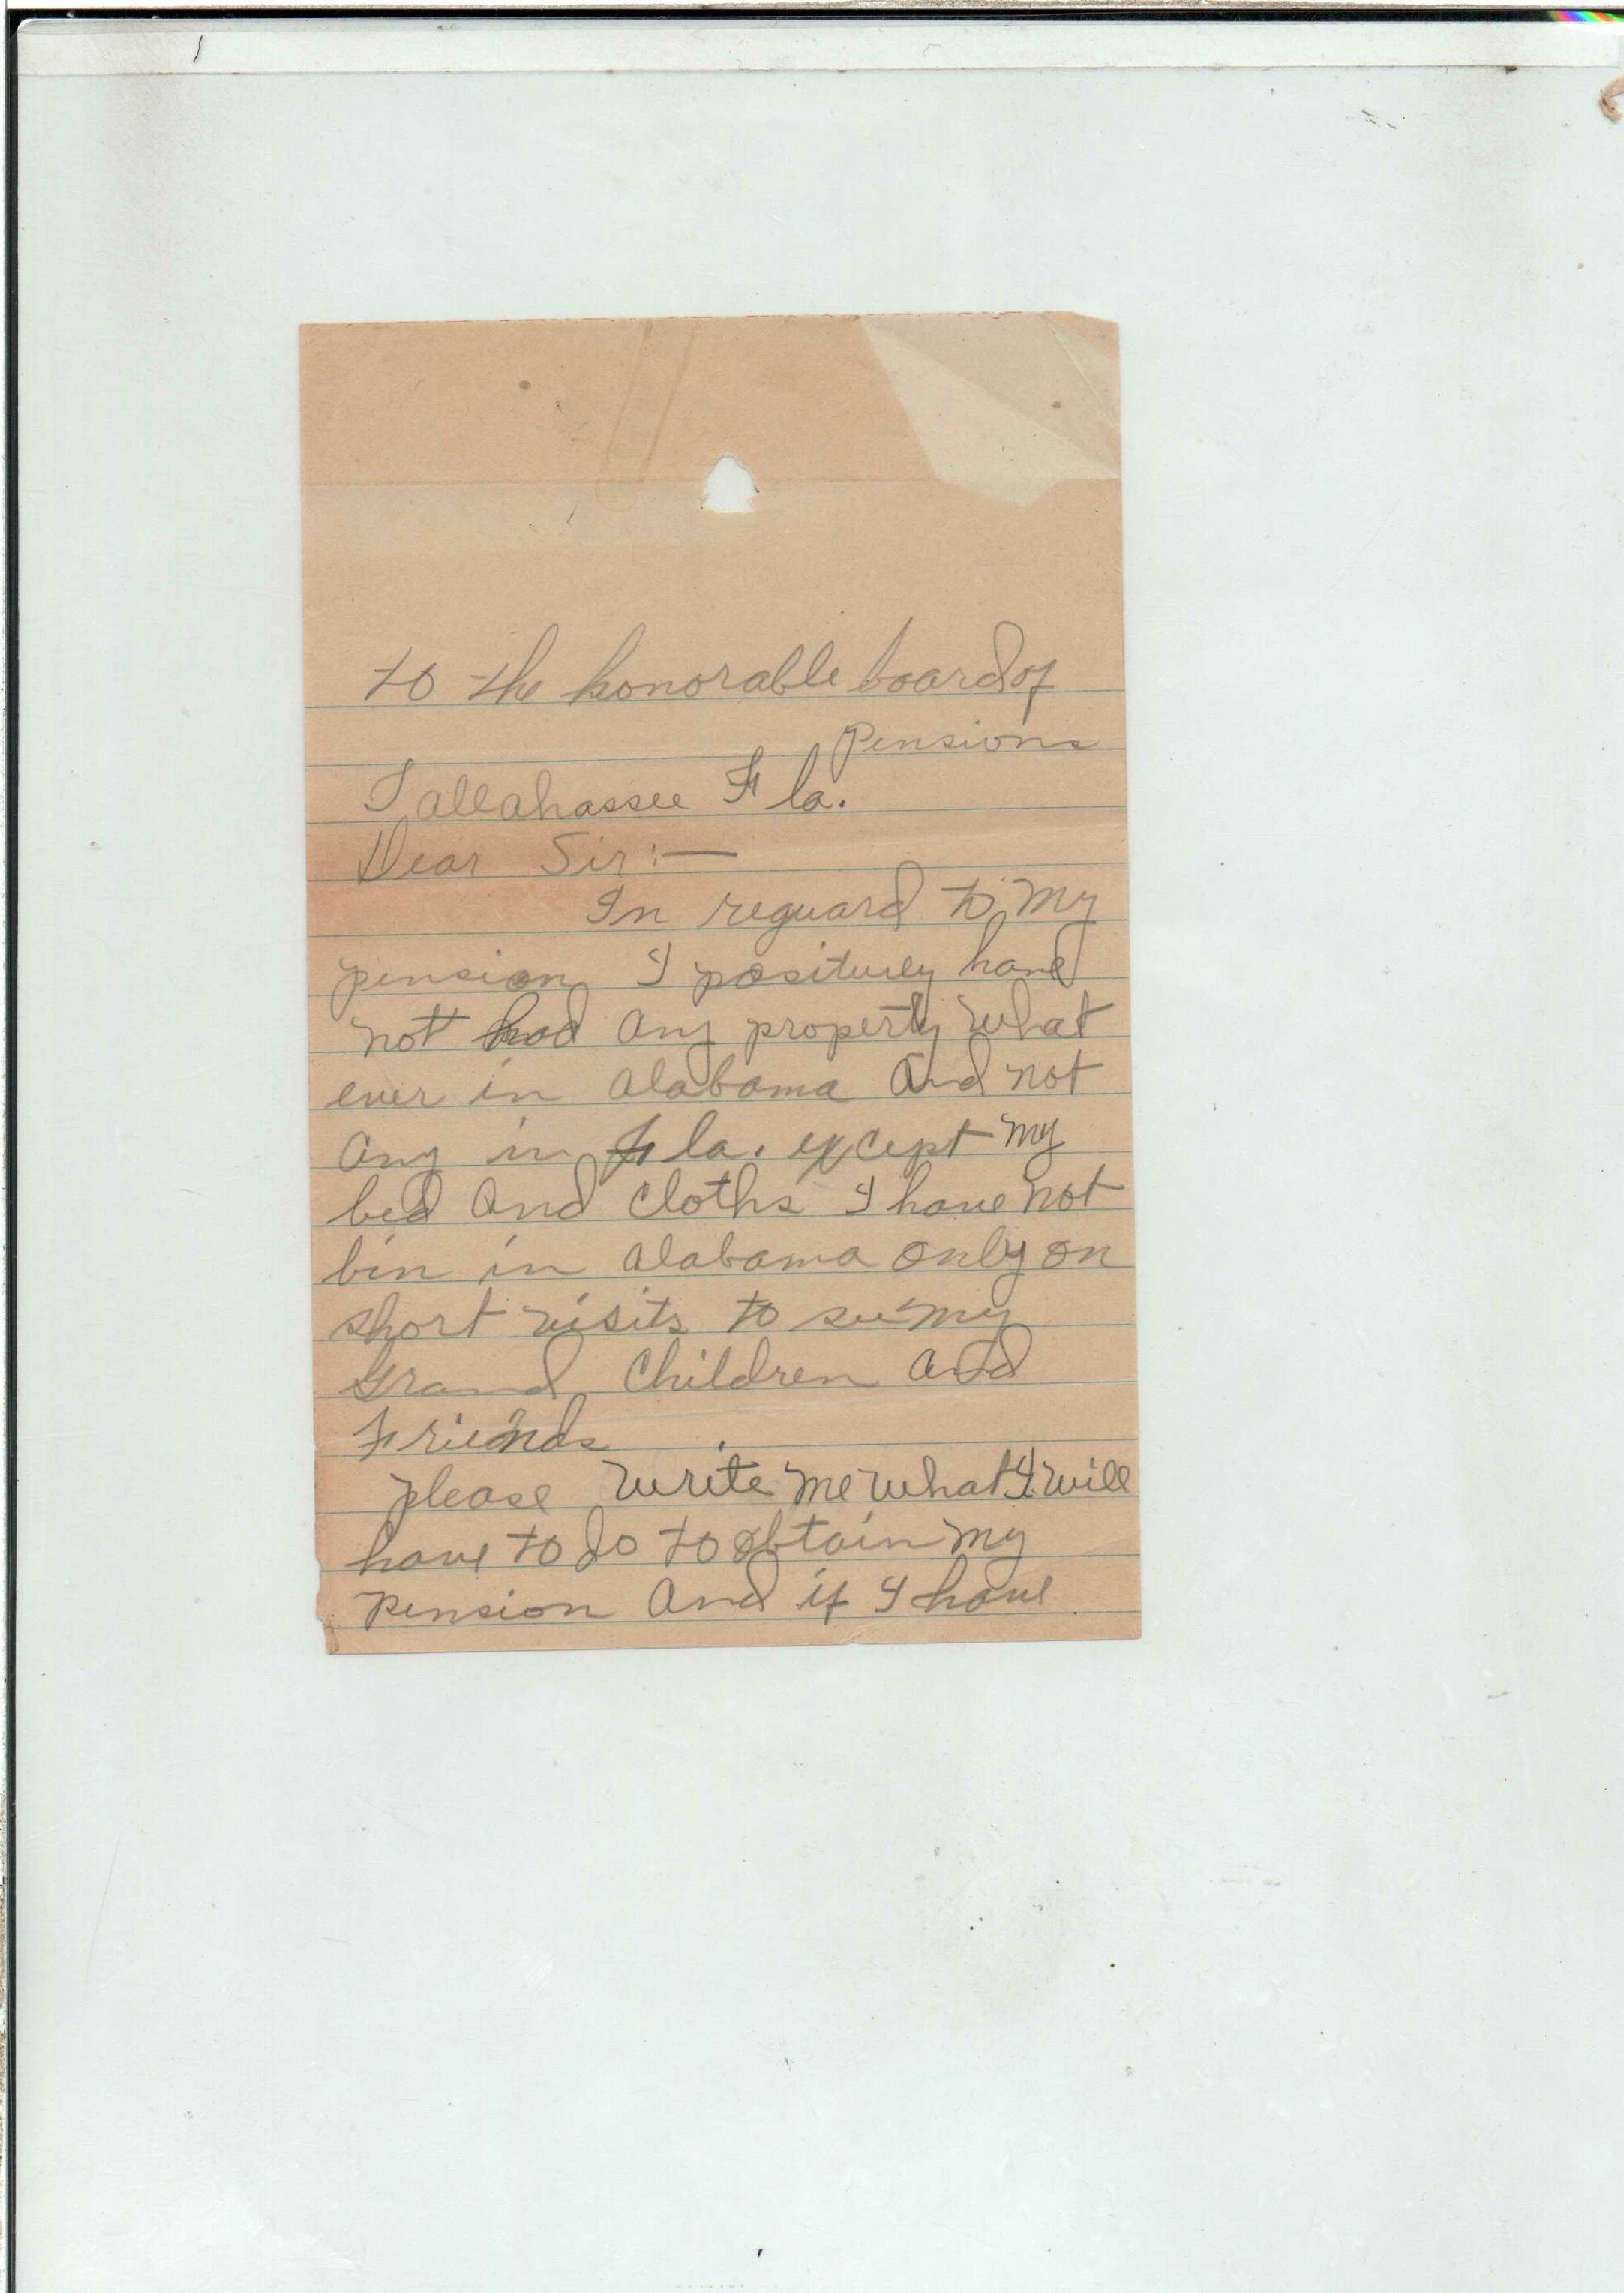 to the honorable board of
Pensions
Tallahassee Fla.
Dear Sir:—
In reguard to my
pension I positively have
not had any property what
ever in Alabama and not
any in Fla. except my
bed and cloths I have not
bin in Alabama only on
short visits to see my
Grand Children and
Friends
please write me what I will
have to do to obtain my
pension and if I have